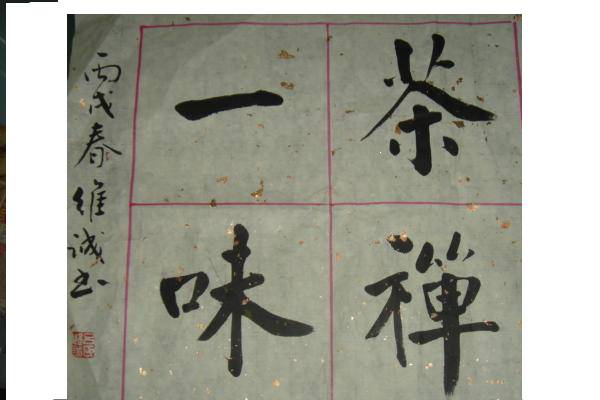 茶禪
一味
丙戌春維诚书